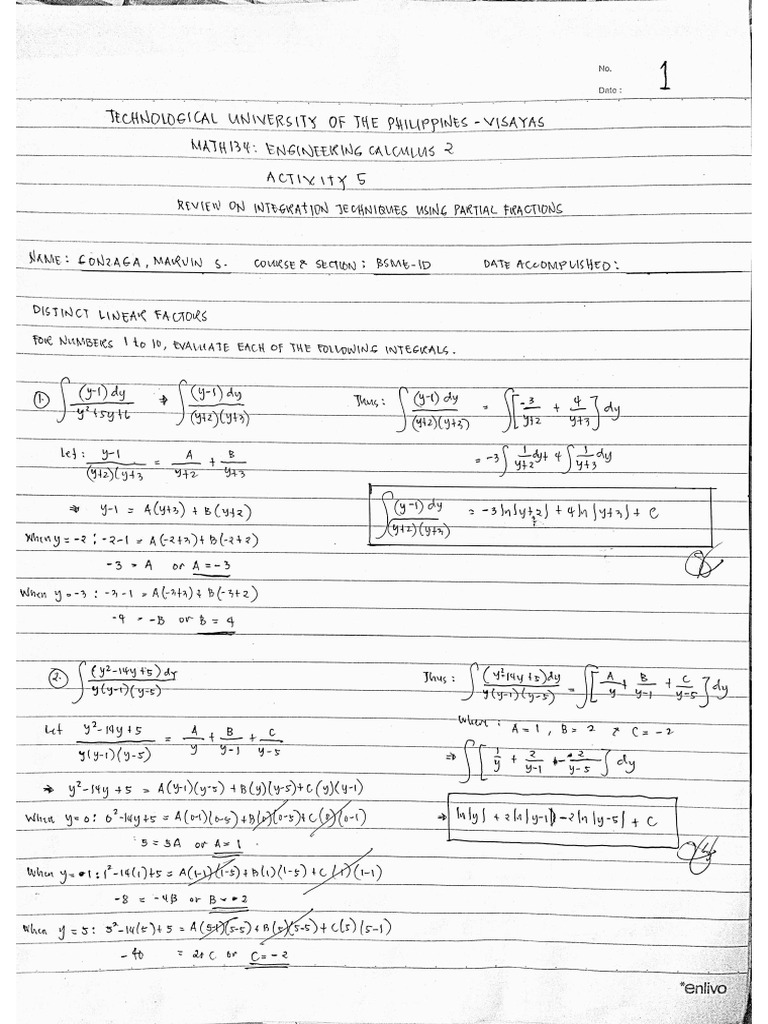 No. 1
Date :
TECHNOLOGICAL UNIVERSITY OF THE PHILIPPINES - VISAYAS
MATH134: ENGINEERING CALCULUS 2
ACTIVITY 5
REVIEW ON INTEGRATION TECHNIQUES USING PARTIAL FRACTIONS
NAME: GONZAGA, MARVIN S. COURSE & SECTION: BSME-1D DATE ACCOMPLISHED:
DISTINCT LINEAR FACTORS
FOR NUMBERS 1 to 10, EVALUATE EACH OF THE FOLLOWING INTEGRALS.
1. ∫ (y-1) dy / y²+5y+6 → ∫ (y-1) dy / (y+2)(y+3)
Let: y-1 / (y+2)(y+3 = A / y+2 + B / y+3
⇒ y-1 = A(y+3) + B(y+2)
When y = -2 : -2-1 = A(-2+3) + B(-2+2)
-3 = A or A = -3
When y = -3 : -3-1 = A(-3+3) + B(-3+2)
-4 = -B or B = 4
Thus: ∫ (y-1) dy / (y+2)(y+3) = ∫ [ -3 / y+2 + 4 / y+3 ] dy
= -3 ∫ 1 / y+2 dy + 4 ∫ 1 / y+3 dy
∫ (y-1) dy / (y+2)(y+3) = -3 ln|y+2| + 4 ln|y+3| + C
2. ∫ (y²-14y+5) dy / y(y-1)(y-5)
Let y²-14y+5 / y(y-1)(y-5) = A / y + B / y-1 + C / y-5
→ y²-14y+5 = A(y-1)(y-5) + B(y)(y-5) + C(y)(y-1)
When y = 0 : 0²-14y+5 = A(0-1)(0-5) + B(0)(0-5) + C(0)(0-1)
5 = 5A or A = 1
When y = 1 : 1²-14(1)+5 = A(1-1)(1-5) + B(1)(1-5) + C(1)(1-1)
-8 = -4B or B = 2
When y = 5 : 5²-14(5)+5 = A(5-1)(5-5) + B(5)(5-5) + C(5)(5-1)
-40 = 20C or C = -2
Thus : ∫ (y²-14y+5) dy / y(y-1)(y-5) = ∫ [ A / y + B / y-1 + C / y-5 ] dy
where : A = 1, B = 2 & C = -2
⇒ ∫ [ 1 / y + 2 / y-1 + -2 / y-5 ] dy
→ ln|y| + 2 ln|y-1| - 2 ln|y-5| + C
*enlivo